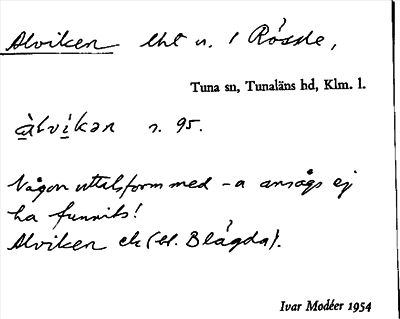 Alviken lht n. / Róssle,
Tuna sn, Tunaläns hd, Klm. l.
àlvíkən s. 95.
Någon uttalsform med -a ansågs ej
ha funnits!
Alviken ek (bl. Blågda).
Ivar Modéer 1954